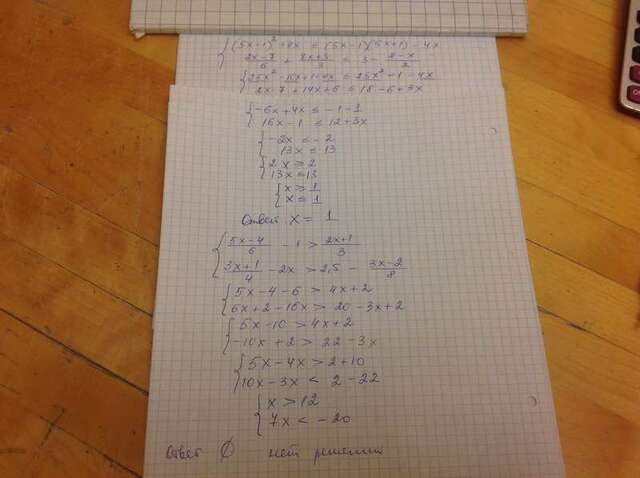 (5x-1)² + 4x ≤ (5x-1)(5x+1) - 4x
(2x-7)/6 + (7x+3)/3 ≤ 3 - (2-x)/2
25x² - 10x + 1 + 4x ≤ 25x² - 1 - 4x
2x - 7 + 14x + 6 ≤ 18 - 6 + 3x
-6x + 4x ≤ -1 - 1
16x - 1 ≤ 12 + 3x
-2x ≤ -2
13x ≤ 13
2x ≥ 2
13x ≤ 13
x ≥ 1
x ≤ 1
Ответ x = 1
(5x-4)/6 - 1 > (2x+1)/3
(3x+1)/4 - 2x > 2,5 - (3x-2)/8
5x - 4 - 6 > 4x + 2
6x + 2 - 16x > 20 - 3x + 2
5x - 10 > 4x + 2
-10x + 2 > 22 - 3x
5x - 4x > 2 + 10
10x - 3x < 2 - 22
x > 12
7x < -20
Ответ ∅ нет решений